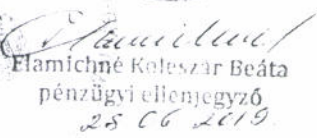 Hamichné Koleszár Beáta
pénzügyi ellenjegyző
28 06 2019.